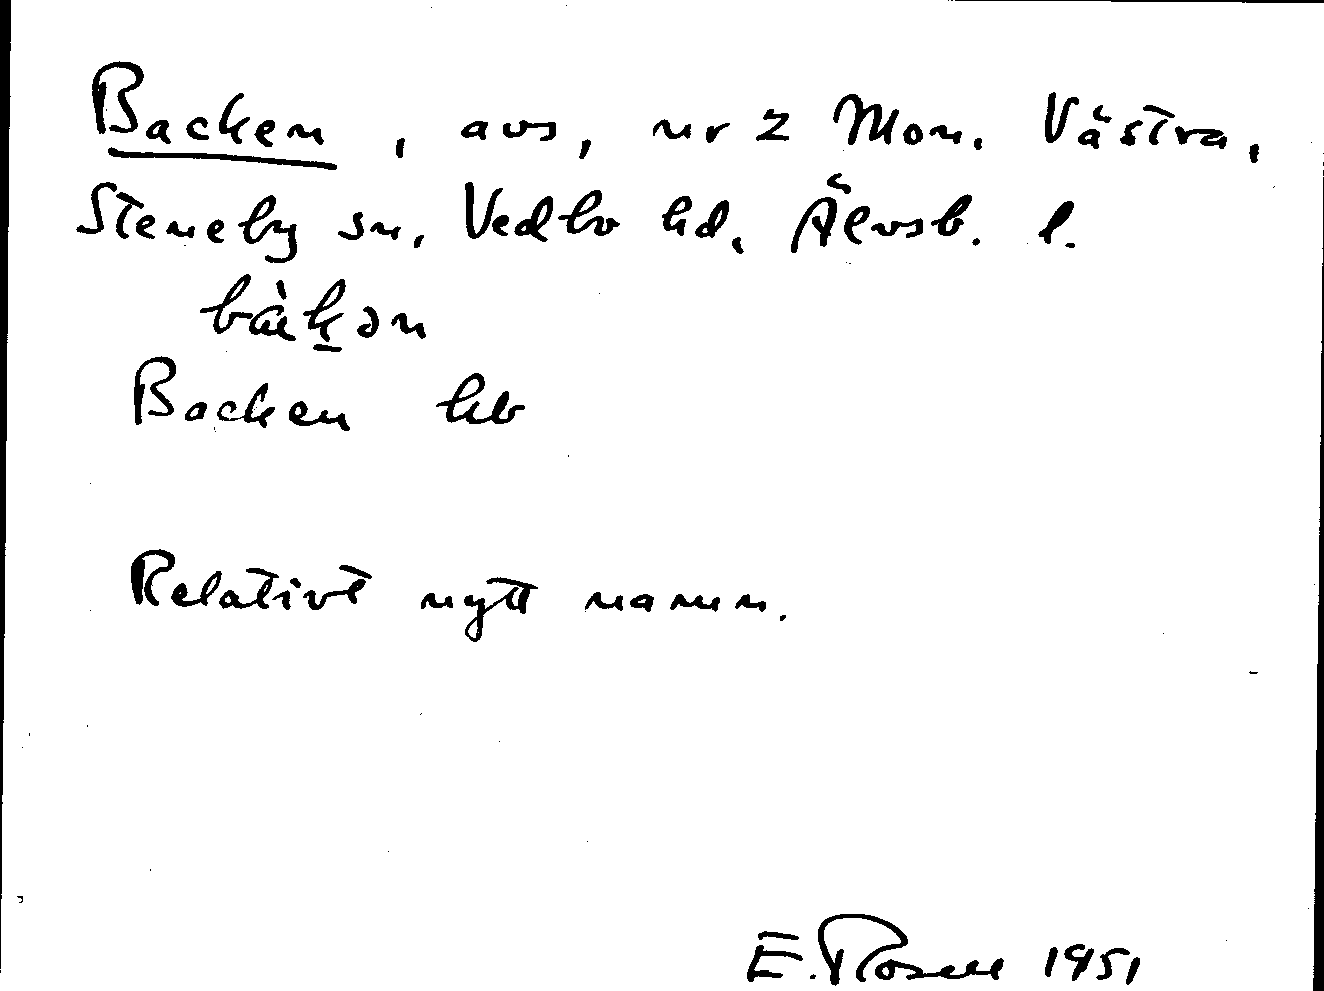 Backen, avs, nr 2 Mon, Västra,
Steneby sn, Vedbo hd, Älvsb. l.
bàk̲ən
Backen kb
Relativt nytt namn.
E. Rosell 1951